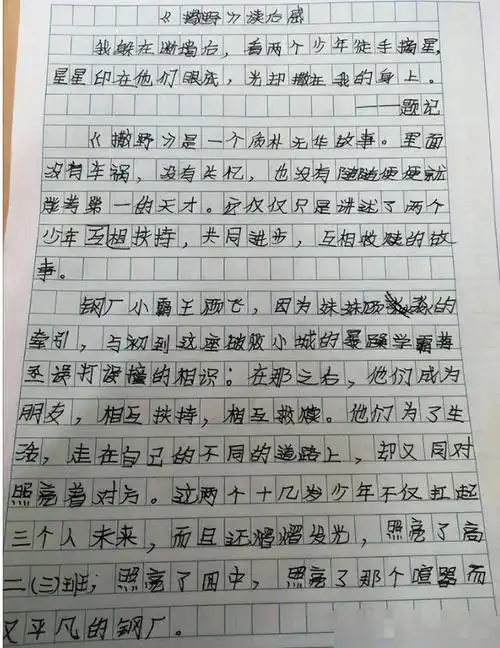 《撒野》读后感
我躲在断墙后，看两个少年徒手摘星，
星星印在他们眼底，光却撒在我的身上。
——题记
《撒野》是一个质朴无华故事。里面
没有车祸，没有失忆，也没有随随便便就
能考第一的天才。它仅仅只是讲述了两个
少年互相扶持，共同进步，互相救赎的故
事。
钢厂小霸王顾飞，因为妹妹顾淼的
牵引，与初到这座破败小城的暴躁学霸蒋
丞误打误撞的相识；在那之后，他们成为
朋友，相互扶持，相互救赎。他们为了生
活，走在自己的不同的道路上，却又同时
照亮着对方。这两个十几岁少年不仅扛起
三个人未来，而且还熠熠发光，照亮了高
二(三)班；照亮了四中，照亮了那个喧嚣而
又平凡的钢厂。